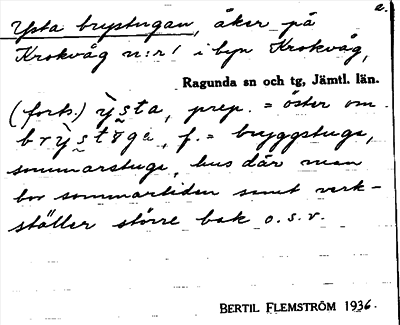 a.
Ysta brystugan, åker på
Krokvåg n:r 1 i byn Krokvåg,
Ragunda sn och tg, Jämtl. län.
(forts.) ỳsta, prep. = öster om
brỳstʊga, f. = bryggstuga,
sommarstuga, hus där man
bor sommartiden samt verk-
ställer större bak o.s.v.
BERTIL FLEMSTRÖM 1936.